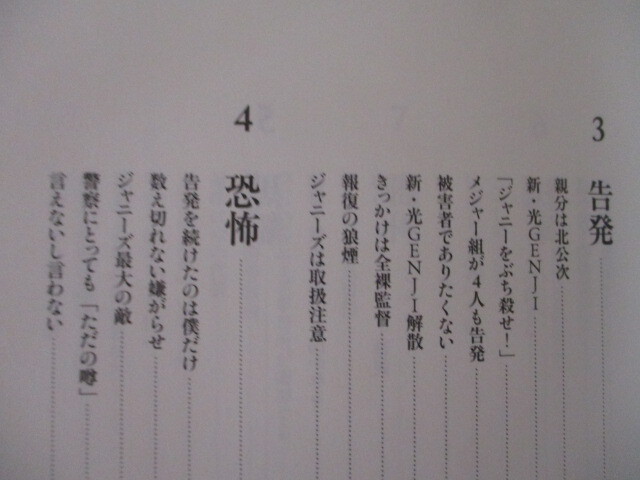 3 告発
親分は北公次
新・光GENJI
「ジャニーをぶち殺せ!」
メジャー組が4人も告発
被害者でありたくない
新・光GENJI解散
きっかけは全裸監督
報復の狼煙
ジャニーズは取扱注意
4 恐怖
告発を続けたのは僕だけ
数え切れない嫌がらせ
ジャニーズ最大の敵
警察にとっても「ただの噂」
言えないし言わない